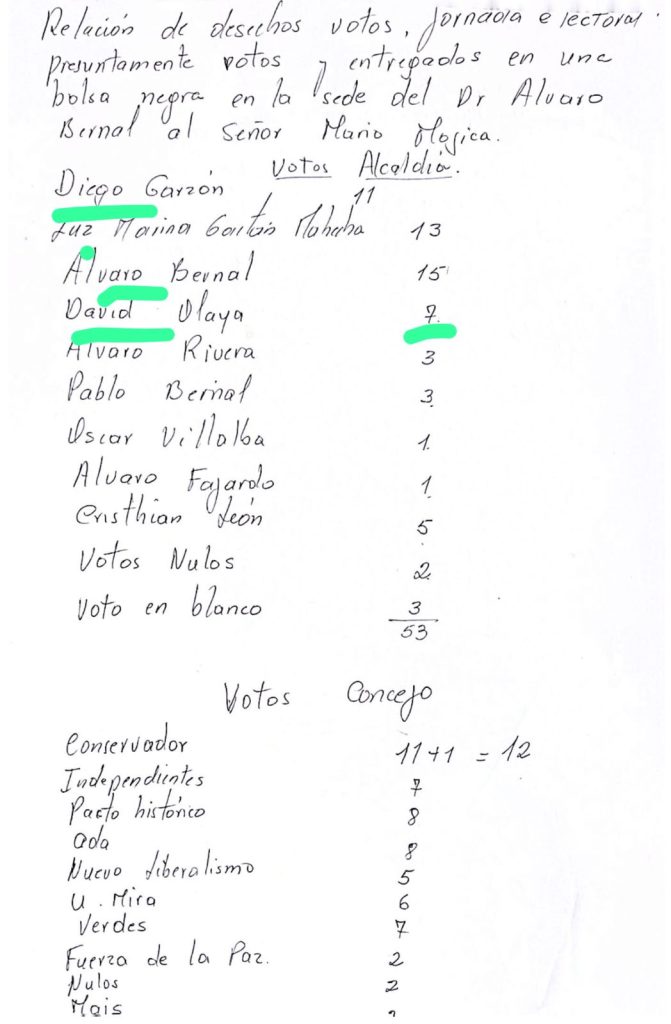 Relación de desechos votos, Jornada electoral.
presuntamente votos y entregados en una
bolsa negra en la sede del Dr Alvaro
Bernal al Señor Mario Mogica.
Votos Alcaldía.
Diego Garzón 11
Luz Marina Gaitán 13
Alvaro Bernal 15
David Olaya 7
Alvaro Rivera 3
Pablo Bernal 3
Oscar Villalba 1
Alvaro Fajardo 1
Cristhian León 5
Votos Nulos 2
Voto en blanco 3
53
Votos Concejo
Conservador 11+1 = 12
Independientes 7
Pacto histórico 8
ada 8
Nuevo Liberalismo 5
U. Mira 6
Verdes 7
Fuerza de la Paz. 2
Nulos 2
Mais